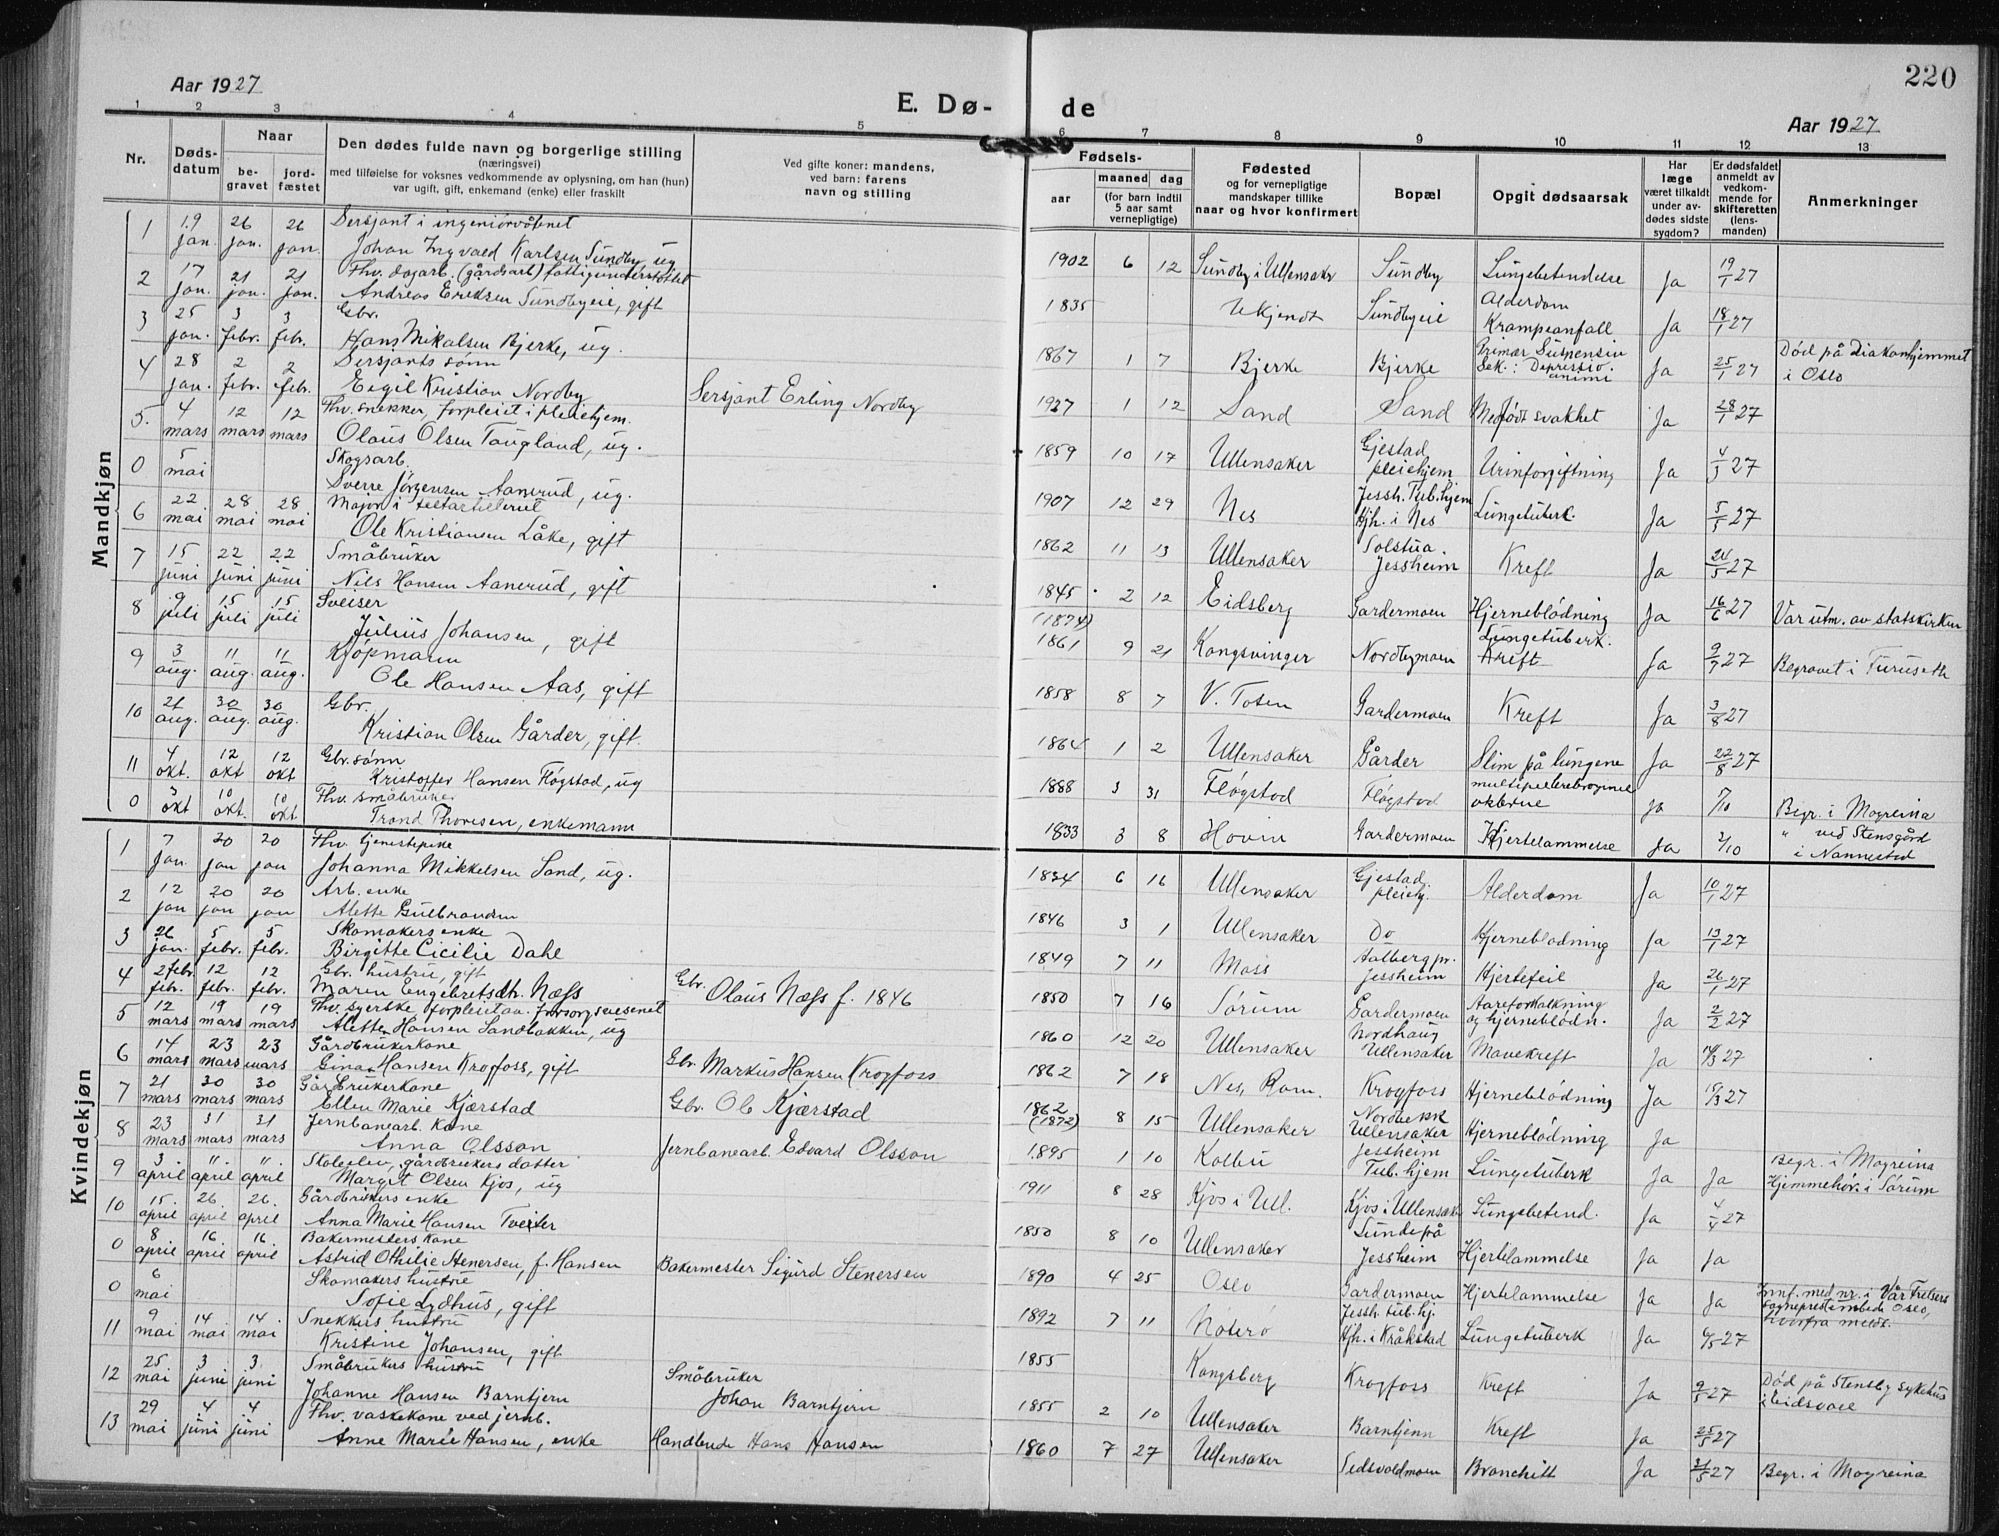 220
Aar 1927
E. Dø- de
Aar 1927
1 2 3 4 5 6 7 8 9 10 11 12 13
Nr.
Døds-
datum
Naar
be-
gravet
jord-
fæstet
Den dødes fulde navn og borgerlige stilling
(næringsvei)
med tilføielse for voksnes vedkommende av oplysning, om han (hun)
var ugift, gift, enkemand (enke) eller fraskilt
Ved gifte koner: mandens,
ved barn: farens
navn og stilling
Fødsels-
aar
maaned dag
(for barn indtil
5 aar samt
vernepligtige)
Fødested
og for vernepligtige
mandskaper tillike
naar og hvor konfirmert
Bopæl
Opgit dødsaarsak
Har
læge
været tilkaldt
under av-
dødes sidste
sygdom?
Er dødsfaldet
anmeldt av
vedkom-
mende for
skifteretten
(lens-
manden)
Anmerkninger
Mandkjøn
1 19 jan. 26 jan. 26 jan. Sersjant i ingeniørvåbnet
Johan Ingvald Karlsen Sundby, ug 1902 6 12 Sundby i Ullensaker Sundby Lungebetendelse Ja 19/1 27
2 17 jan. 21 jan. 21 jan. Fhv. dagarb. (gårdsarb) fattigunderstøttet
Andreas Eriksen Sundbyeie, gift 1835 Ukjendt Sundbyeie Alderdom Krampeanfall Ja 18/1 27
3 25 jan. 3 febr. 3 febr. Gbr.
Hans Nikolsen Bjerke, ug. 1867 1 7 Bjerke Bjerke Primær Suspensiv Sek.: Depressio animi Ja 25/1 27 Død på Diakonhjemmet i Oslo
4 28 jan. 2 febr. 2 febr. Sersjants sønn
Eigil Kristian Nordby Sersjant Erling Nordby 1927 1 12 Sand Sand Medfødt svakhet Ja 28/1 27
5. 4 mars 12 mars 12 mars Fhv. snekker, forpleiet i pleiehjem.
Olaus Olsen Taugland, ug. 1859 10 17 Ullensaker Gjestad pleiehjem Urinforgiftning Ja 4/3 27
0 5 mai Skogsarb.
Sverre Jørgensen Aanerud, ug. 1907 12 29 Nes Jessh. Tub.hjem Hjh. i Nes Lungetuberk. Ja 5/5 27
6 22 mai 28 mai 28 mai Major i feltartilleriet
Ole Kristiansen Låke, gift 1862 11 13 Ullensaker Solstua. Jessheim Kreft Ja 24/5 27
7 15 juni 22 juni 22 juni Småbruker
Nils Hansen Aanerud, gift 1845 2 12 Eidsberg Gardermoen Hjerneblödning Ja 16/6 27 Var utm. av statskirken
8 9 juli 15 juli 15 juli Sveiser
Julius Johansen, gift (1874) 1861 9 21 Kongsvinger Nordbymoen Lungetuberk. Kreft Ja 9/7 27 Begravet i Furuseth
9 3 aug. 11 aug. 11 aug. Kjøpmann
Ole Hansen Aas, gift 1858 8 7 V. Toten Gardermoen Kreft Ja 3/8 27
10 21 aug. 30 aug. 30 aug. Gbr.
Kristian Olsen Gårder, gift. 1864 1 2 Ullensaker Gårder Slim på lungene Ja 22/8 27
11 4 okt. 12 okt 12 okt Gbr.sønn
Kristoffer Hansen Fløgstad, ug 1888 3 31 Fløgstad Fløgstad ja 7/10 Begr. i Mogreina
0 3 okt 10 okt. 10 okt Fhv. småbruker
Trond Thoresen, enkemann 1833 3 8 Hovin Gardermoen Hjertelammelse Ja 2/10 " ved Stensgård i Nannestad
Kvindekjøn
1 7 Jan. 20 jan 20 jan Fhv. tjenestepike
Johanna Mikkelsen Sand, ug. 1834 6 16 Ullensaker Gjestad pleiehj. Alderdom Ja 10/1 27
2 12 jan 20 jan 20 jan Arb. enke
Alette Gulbrandsen 1846 3 1 Ullensaker Do Hjerneblødning Ja 13/1 27
3 26 jan. 5 febr. 5 febr. Skomakers enke
Birgitte Cicilie Dahl 1849 7 11 Moss Aalberg pr. Jessheim Hjertefeil Ja 26/1 27
4 2 febr. 12 febr. 12 febr. Gbr. hustru, gift
Maren Engebretsdtr. Næss Gbr. Olaus Næss f. 1846 1850 7 16 Sørum Gardermoen Aareforkalkning og hjerneblødn. Ja 2/2 27
5 12 mars 19 mars 19 mars Fhv. syerske forpleiet av forsorgsvesenet
Alette Hansen Sandbakken, ug 1860 12 20 Ullensaker Nordhaug Ullensaker Mavekreft Ja 14/3 27
6 14 mars 23 mars 23 mars Gårdbrukerkone
Gina Hansen Krogfoss, gift Gbr. Markus Hansen Krogfoss 1862 7 18 Nes, Rom. Krogfoss Hjerneblødning Ja 19/3 27
7 21 mars 30 mars 30 mars Gårdbrukerkone
Ellen Marie Kjærstad Gbr. Ole Kjærstad 1862 (1872) 8 15 Ullensaker Nordbekk Ullensaker Hjerneblødning Ja
8 23 mars 31 mars 31 mars Jernbanearb. kone
Anna Olsson Jernbanearb. Edvard Olsson 1895 1 10 Kolbu Jessheim Tub.hjem Lungetuberk Ja Ja Begr. i Mogreina Hjemmehör. i Sørum
9 3 april 11. april 11. april Skoleelev, gårdbrukers datter
Margit Olsen Kjos, ug 1911 8 28 Kjos i Ull. Kjos i Ullensaker Lungebetend. Ja 4/4 27
10 15. april 26 april 26. april Gårdbrukers enke
Anna Marie Hansen Tveiter 1850 8 10 Ullensaker Lunde på Jessheim Hjertelammelse Ja Ja
0 8 april 16 april 16 april Bakermesters kone
Astrid Othilie Stenersen, f. Hansen Bakermester Sigurd Stenersen 1890 4 25 Oslo Gardermoen Hjertelammelse Ja Ja Innf. med nr. i Vår Frelsers Sogneprestembede Oslo, hvorfra meldt.
0 6 mai Skomakers hustru
Sofie Lydhus, gift 1892 7 11 Nøterø Jessh. tub.hj. Hjh. i Kråkstad Lungetuberk Ja 6/5 27
11 9 mai 14 mai 14 mai Snekkers hustru
Kristine Johansen, gift 1855 Kongsberg Krogfoss Kreft Ja 9/5 27 Død på Stensby sykehus i Eidsvoll
12 25 mai 3 juni 3 juni Småbrukers hustru
Johanne Hansen Barntjern Småbruker Johan Barntjern 1855 2 10 Ullensaker Barntjenn Kreft Ja 25/5 27
13 29 mai 4 juni 4 juni Fhv. vaskekone ved jernb.
Anne Marie Hansen, enke Handlende Hans Hansen 1860 7 27 Ullensaker Bronchitt Ja 31/5 27 Begr. i Mogreina